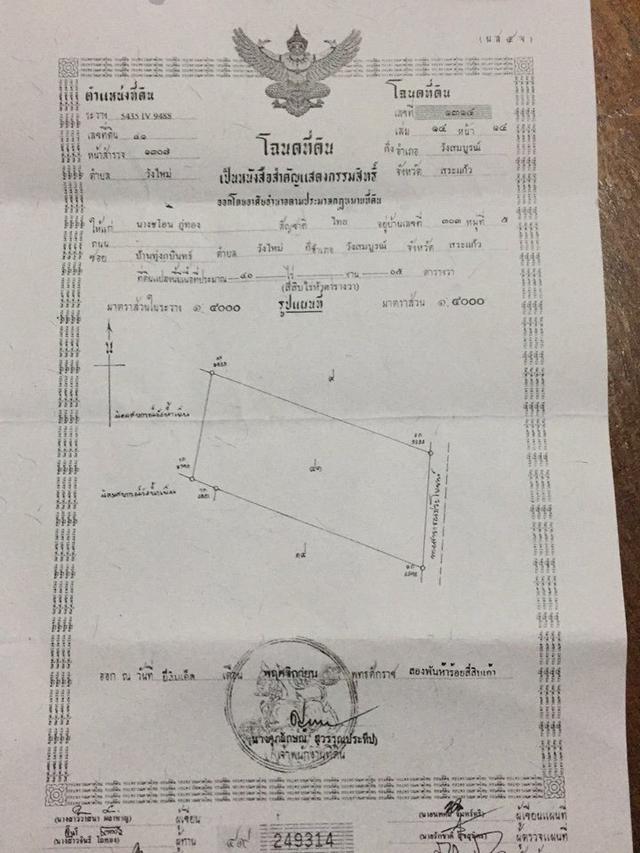 (น.ส.๔ จ)
ตำแหน่งที่ดิน
ระวาง 5435 IV 9488
เลขที่ดิน ๔๑
หน้าสำรวจ ๑๓๐๗
ตำบล วังใหม่
โฉนดที่ดิน
เลขที่ ๑๓๑๔
เล่ม ๑๔ หน้า ๑๔
กิ่งอำเภอ วังสมบูรณ์
จังหวัด สระแก้ว
โฉนดที่ดิน
เป็นหนังสือสำคัญแสดงกรรมสิทธิ์
ออกโดยอาศัยอำนาจตามประมวลกฎหมายที่ดิน
ให้แก่ สัญชาติ ไทย อยู่บ้านเลขที่ ๓๐๓ หมู่ที่ ๕
ถนน
ซอย บ้านทุ่งกบินทร์ ตำบล วังใหม่ กิ่งอำเภอ วังสมบูรณ์ จังหวัด สระแก้ว
ที่ดินแปลงนี้มีเนื้อที่ประมาณ ๔๐ ไร่ - งาน ๐๕ ตารางวา
(สี่สิบไร่ห้าตารางวา)
มาตราส่วนในระวาง ๑:๔๐๐๐ รูปแผนที่ มาตราส่วน ๑:๔๐๐๐
น
๙
ทางสาธารณประโยชน์
ออก ณ วันที่ ยี่สิบเอ็ด เดือน พฤศจิกายน พุทธศักราช สองพันห้าร้อยสี่สิบเก้า
สุวรรณประทีป)
เจ้าพนักงานที่ดิน
ผู้เขียน
ผู้ทาน
ผู้เขียนแผนที่
ผู้ตรวจแผนที่
249314